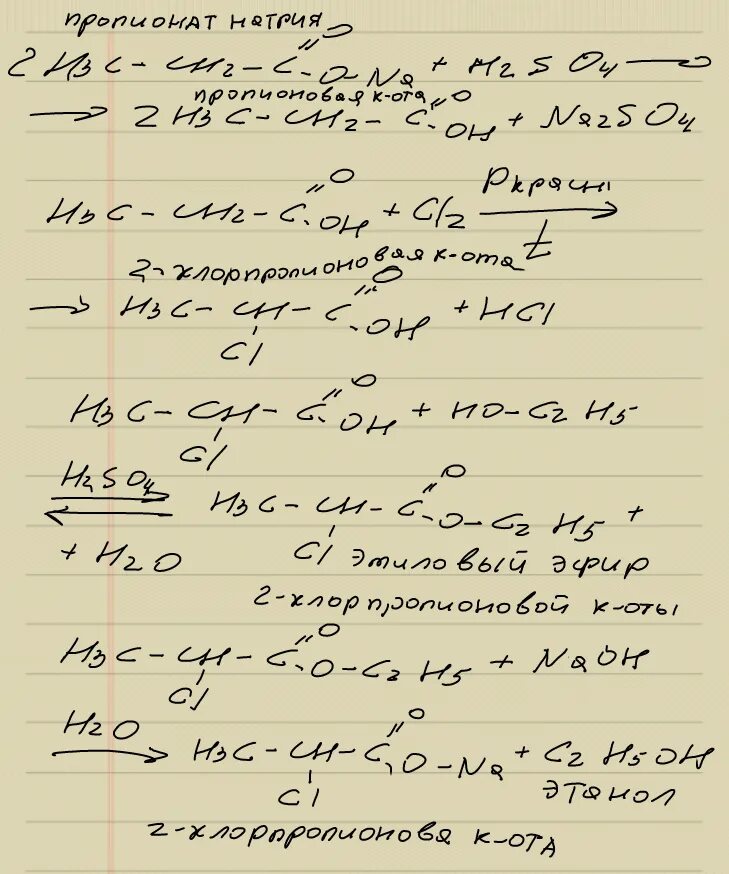 пропионат натрия
O
2 H3C-CH2-C-O-Na + H2SO4 →
пропионовая к-ота
O
→ 2 H3C-CH2-C-OH + Na2SO4
O
H3C-CH2-C-OH + Cl2 → P красн t
2-хлорпропионовая к-ота
O
→ H3C-CH-C-OH + HCl
Cl
O
H3C-CH-C-OH + HO-C2H5
Cl
H2SO4
O
H3C-CH-C-O-C2H5 +
+ H2O
Cl этиловый эфир
2-хлорпропионовой к-оты
O
H3C-CH-C-O-C2H5 + NaOH
Cl
H2O
O
→ H3C-CH-C-O-Na + C2H5OH
Cl этанол
2-хлорпропионова к-ота